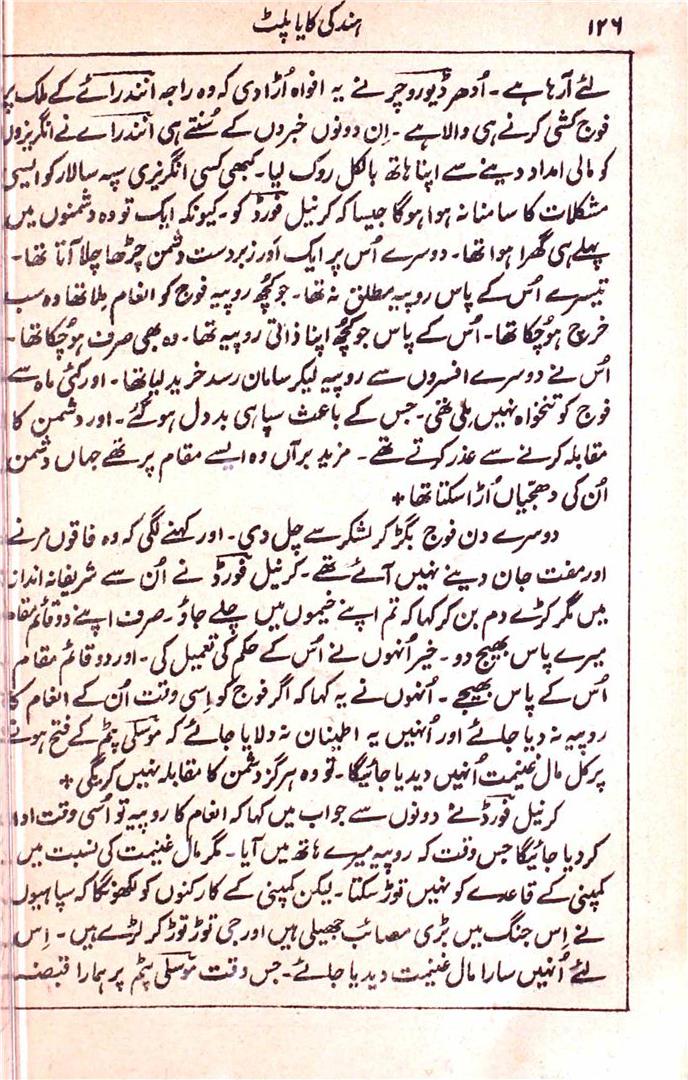 ۱۲۶ ہند کی کایا پلٹ
لئے آرہا ہے ۔ اُدھر ڈیوروچر نے یہ افواہ اُڑا دی کہ وہ راجہ انندرائے کے ملک پر
فوج کشی کرنے ہی والا ہے ۔ اِن دونوں خبروں کے سُنتے ہی انندراے نے انگریزوں
کو مالی امداد دینے سے اپنا ہاتھ بالکل روک لیا ۔ کبھی کسی انگریزی سپہ سالار کو ایسی
مشکلات کا سامنا نہ ہوا ہوگا جیسا کہ کرنیل فورڈ کو ۔ کیونکہ ایک تو وہ دشمنوں میں
پہلے ہی گھرا ہوا تھا ۔ دوسرے اُس پر ایک اَور زبردست دشمن چڑھا چلا آتا تھا ۔
تیسرے اُس کے پاس روپیہ مطلق نہ تھا ۔ جو کچھ روپیہ فوج کو انعام مِلا تھا وہ سب
خرچ ہوچکا تھا ۔ اُس کے پاس جو کچھ اپنا ذاتی روپیہ تھا ۔ وہ بھی صرف ہوچکا تھا ۔
اُس نے دوسرے افسروں سے روپیہ لیکر سامان رسد خرید لیا تھا ۔ اور کئی ماہ سے
فوج کو تنخواہ نہیں مِلی تھی ۔ جس کے باعث سپاہی بد دل ہوگئے ۔ اور دشمن کا
مقابلہ کرنے سے عذر کرتے تھے ۔ مزید برآں وہ ایسے مقام پر تھے جہاں دشمن
اُن کی دھجّیاں اُڑا سکتا تھا ٭
دوسرے دن فوج بگڑ کر لشکر سے چل دی ۔ اور کہنے لگی کہ وہ فاقوں مرنے
اور مفت جان دینے نہیں آئے تھے ۔ کرنیل فورڈ نے اُن سے شریفانہ انداز
میں مگر کڑے دم بن کر کہا کہ تم اپنے خیموں میں چلے جاؤ ۔ صرف اپنے دو قائم مقام
میرے پاس بھیج دو ۔ خیر اُنہوں نے اُس کے حکم کی تعمیل کی ۔ اور دو قائم مقام
اُس کے پاس بھیجے ۔ اُنہوں نے یہ کہا کہ اگر فوج کو اِسی وقت اُن کے انعام کا
روپیہ نہ دیا جائے اور اُنہیں یہ اطینان نہ دلایا جائے کہ موسلی پٹم کے فتح ہونے
پر کل مال غنیمت اُنہیں دیدیا جائیگا ۔ تو وہ ہرگز دشمن کا مقابلہ نہیں کریگی ٭
کرنیل فورڈ نے دونوں سے جواب میں کہا کہ انعام کا روپیہ تو اُسی وقت ادا
کر دیا جائیگا جس وقت کہ روپیہ میرے ہاتھ میں آیا ۔ مگر مال غنیمت کی نسبت میں
کمپنی کے قاعدے کو نہیں توڑ سکتا ۔ لیکن کمپنی کے کارکنوں کو لکھونگا کہ سپاہیوں
نے اِس جنگ میں بڑی مصائب جھیلی ہیں اور جی توڑ توڑ کر لڑے ہیں ۔ اِس
لئے اُنہیں سارا مال غنیمت دیدیا جائے ۔ جس وقت موسلی پٹم پر ہمارا قبضہ